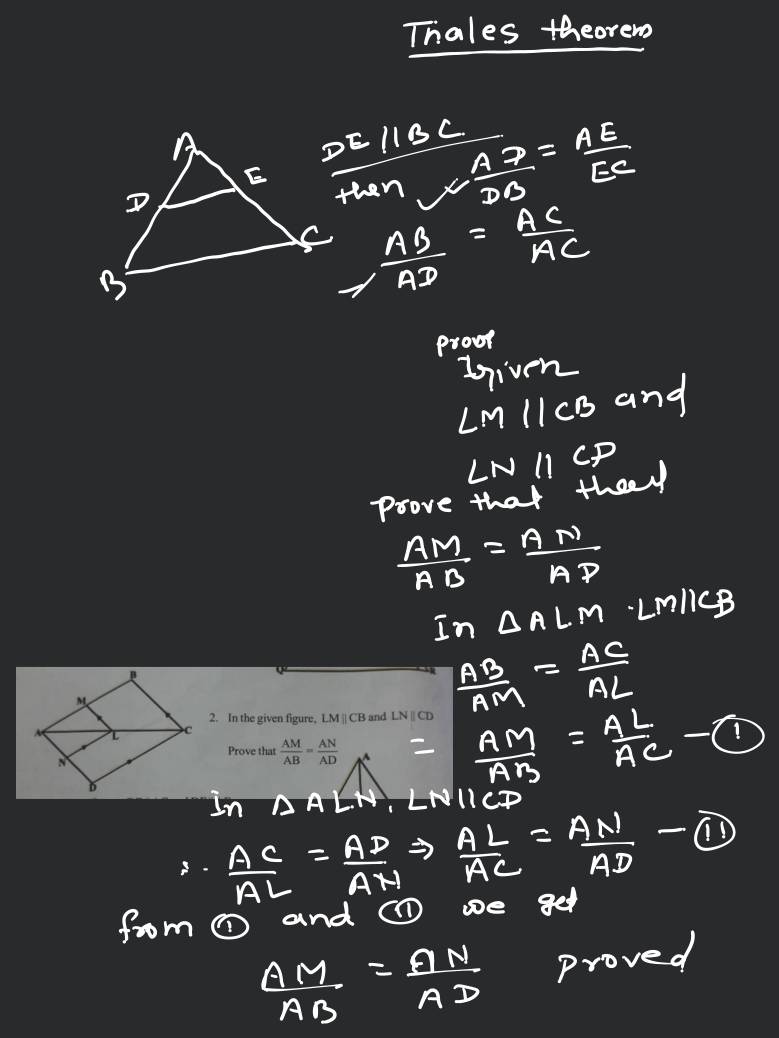 Thales theorem
A
D E
B C
DE || BC
then AD/DB = AE/EC
AB/AD = AC/AC
proof
Given
LM || CB and
LN || CD
Prove that
AM/AB = AN/AD
In △ALM · LM||CB
AB/AM = AC/AL
= AM/AB = AL/AC – (I)
B
M
A L C
N
D
2. In the given figure, LM || CB and LN || CD
Prove that AM/AB = AN/AD
A
In △ALN, LN||CD
∴ AC/AL = AD/AN ⇒ AL/AC = AN/AD – (II)
from (I) and (II) we get
AM/AB = AN/AD proved